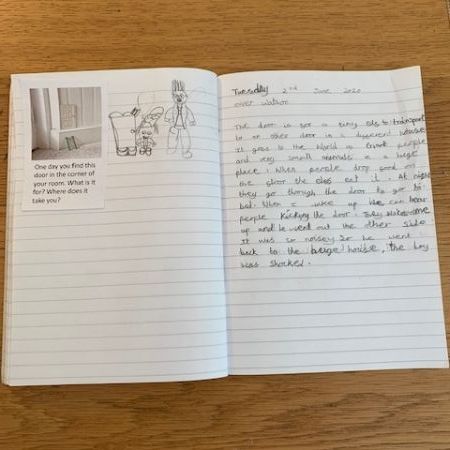 One day you find this
door in the corner of
your room. What is it
for? Where does it
take you?
Tuesday 2nd June 2020
The door is for a tiny to transport
to an other door in a different house
It goes to the world is people
and very small in a huge
place. When people drop food on
the floor the eat it. At night
they go through the door to go to
bed. When a wake up he can hear
people kicking the door. me
up and he went out the other side
It was so noisey so he went
back to the house, the boy
was shocked.